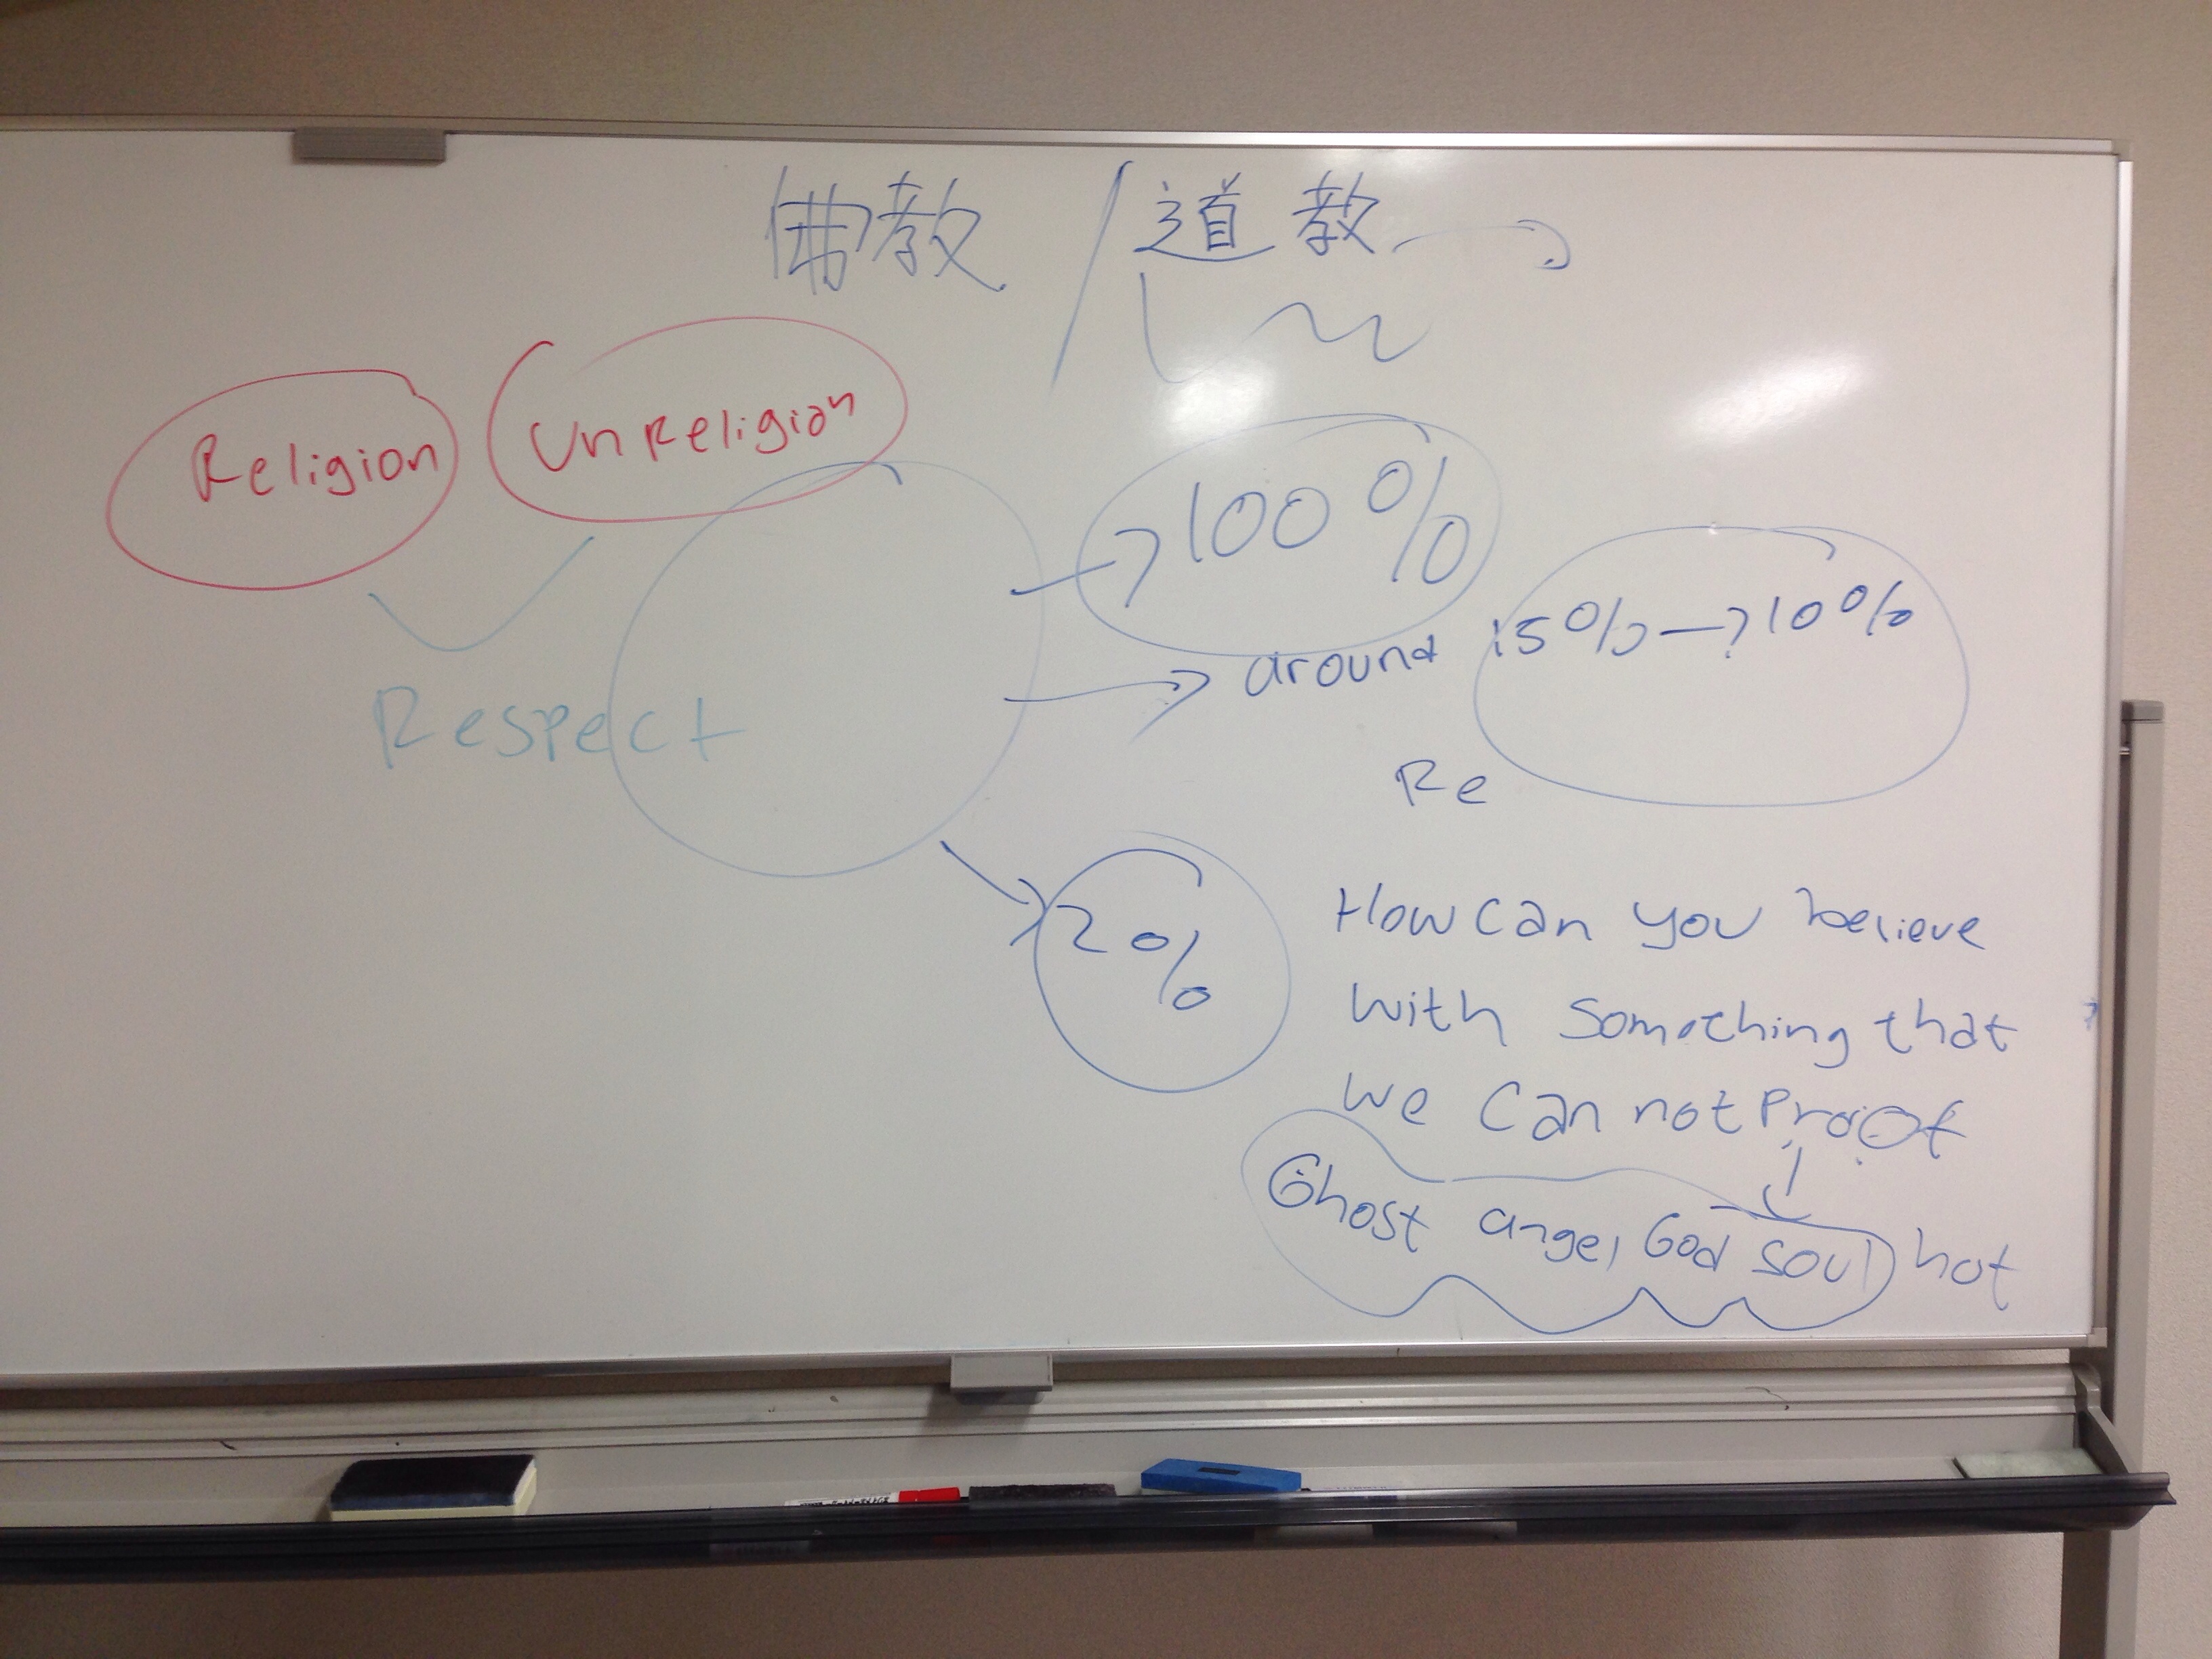 佛教 / 道教
Religion
UnReligion
100%
around 15% → 10%
Respect
Re
2%
How can you believe
with something that
we can not Proof
Ghost angel God soul not